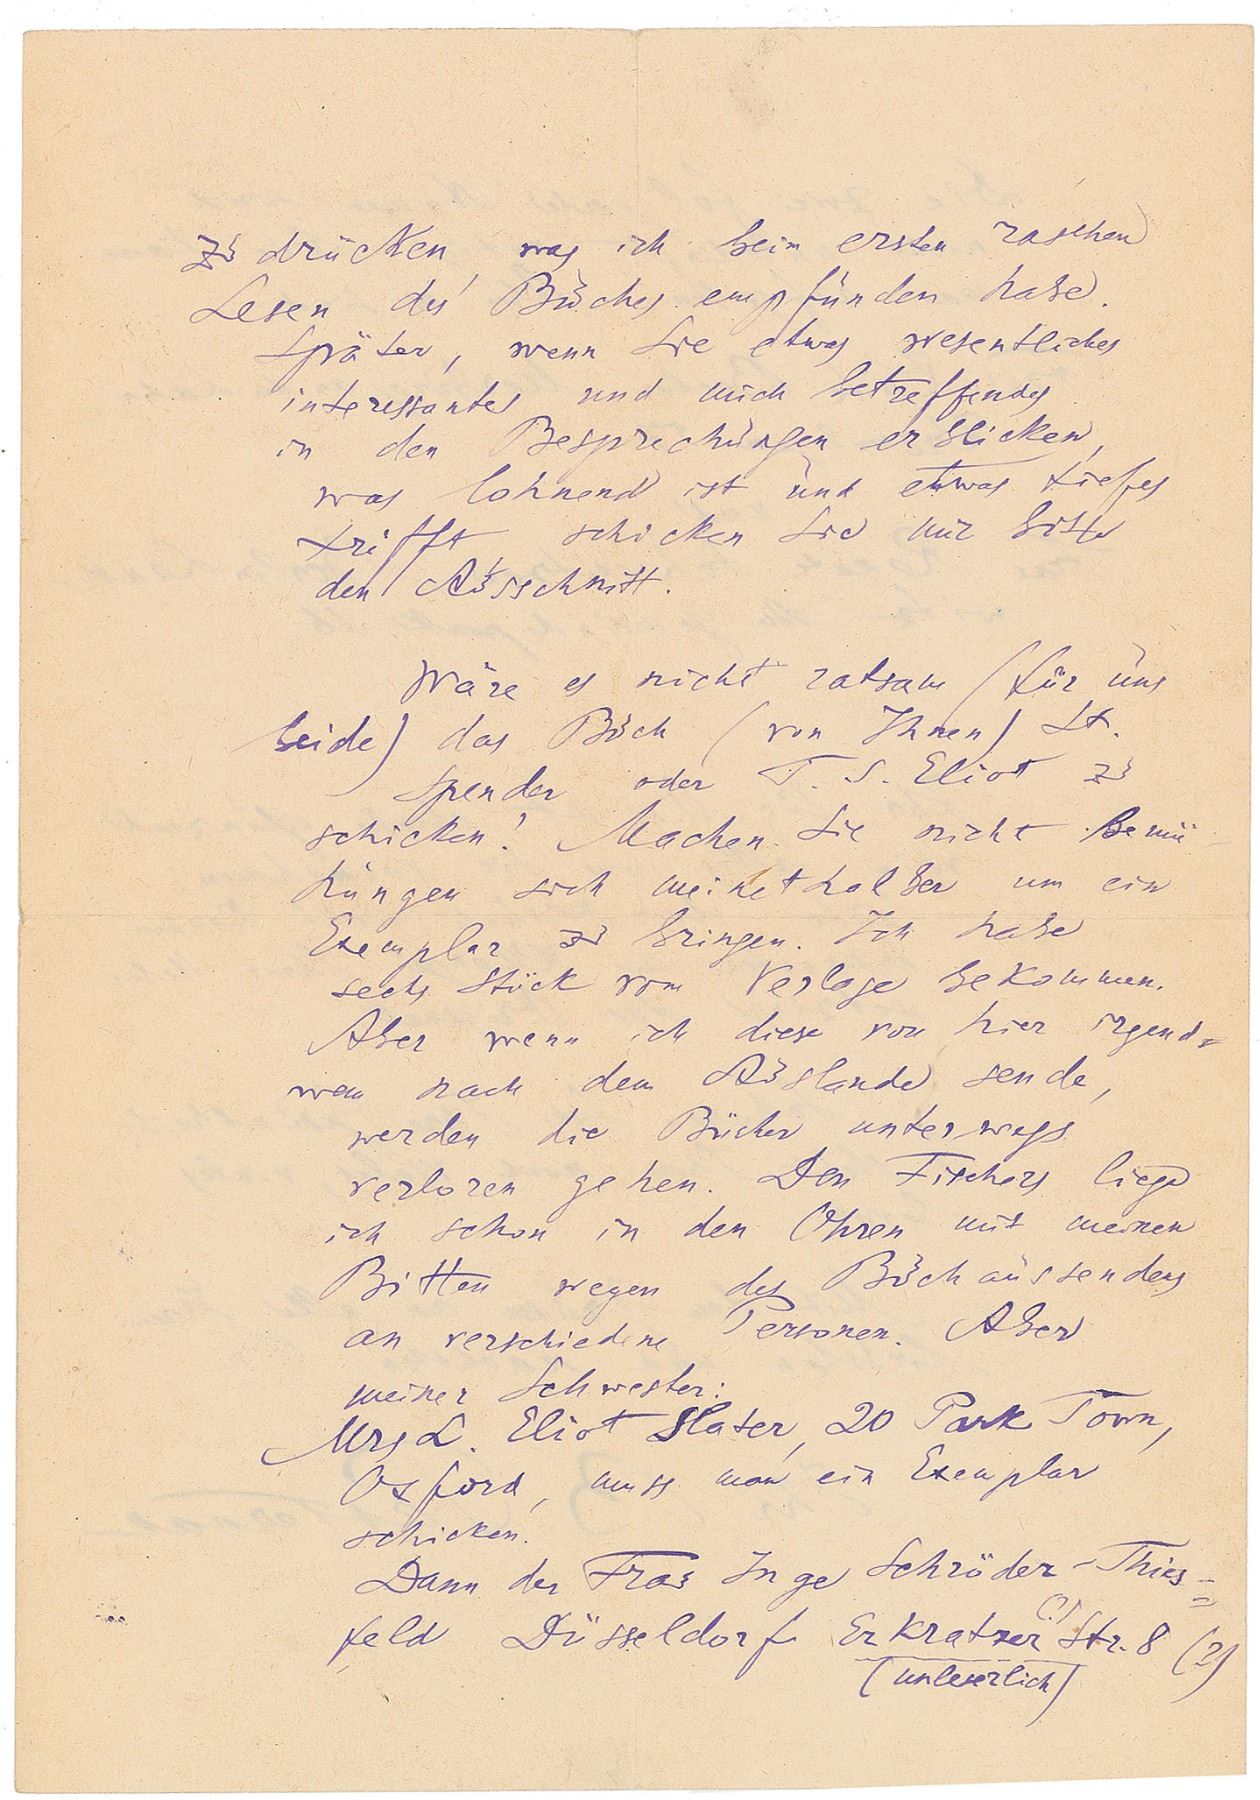 zu drücken was ich beim ersten raschen
Lesen des Buches empfunden habe.
Später, wenn Sie etwas wesentliches
interessantes und mich betreffendes
in den Besprechungen erblicken,
was lohnend ist und etwas tiefes
trifft schicken Sie mir bitte
den Ausschnitt.
Wäre es nicht ratsam (für uns
beide) das Buch (von Ihnen) St.
Spender oder T. S. Eliot zu
schicken? Machen Sie nicht Bemü
hungen sich meinethalber um ein
Exemplar zu bringen. Ich habe
sechs Stück vom Verlage bekommen.
Aber wenn ich diese von hier irgend=
wem nach dem Auslande sende,
werden die Bücher unterwegs
verloren gehen. Den Fischers liege
ich schon in den Ohren mit meinen
Bitten wegen des Buchaussendens
an verschiedene Personen. Aber
meiner Schwester:
Mrs L. Eliot Slater, 20 Park Town,
Oxford, muss man ein Exemplar
schicken.
Dann der Frau Inge Schröder-Thies=
feld Düsseldorf Erkratzer Str. 8 (?)
(unleserlich)